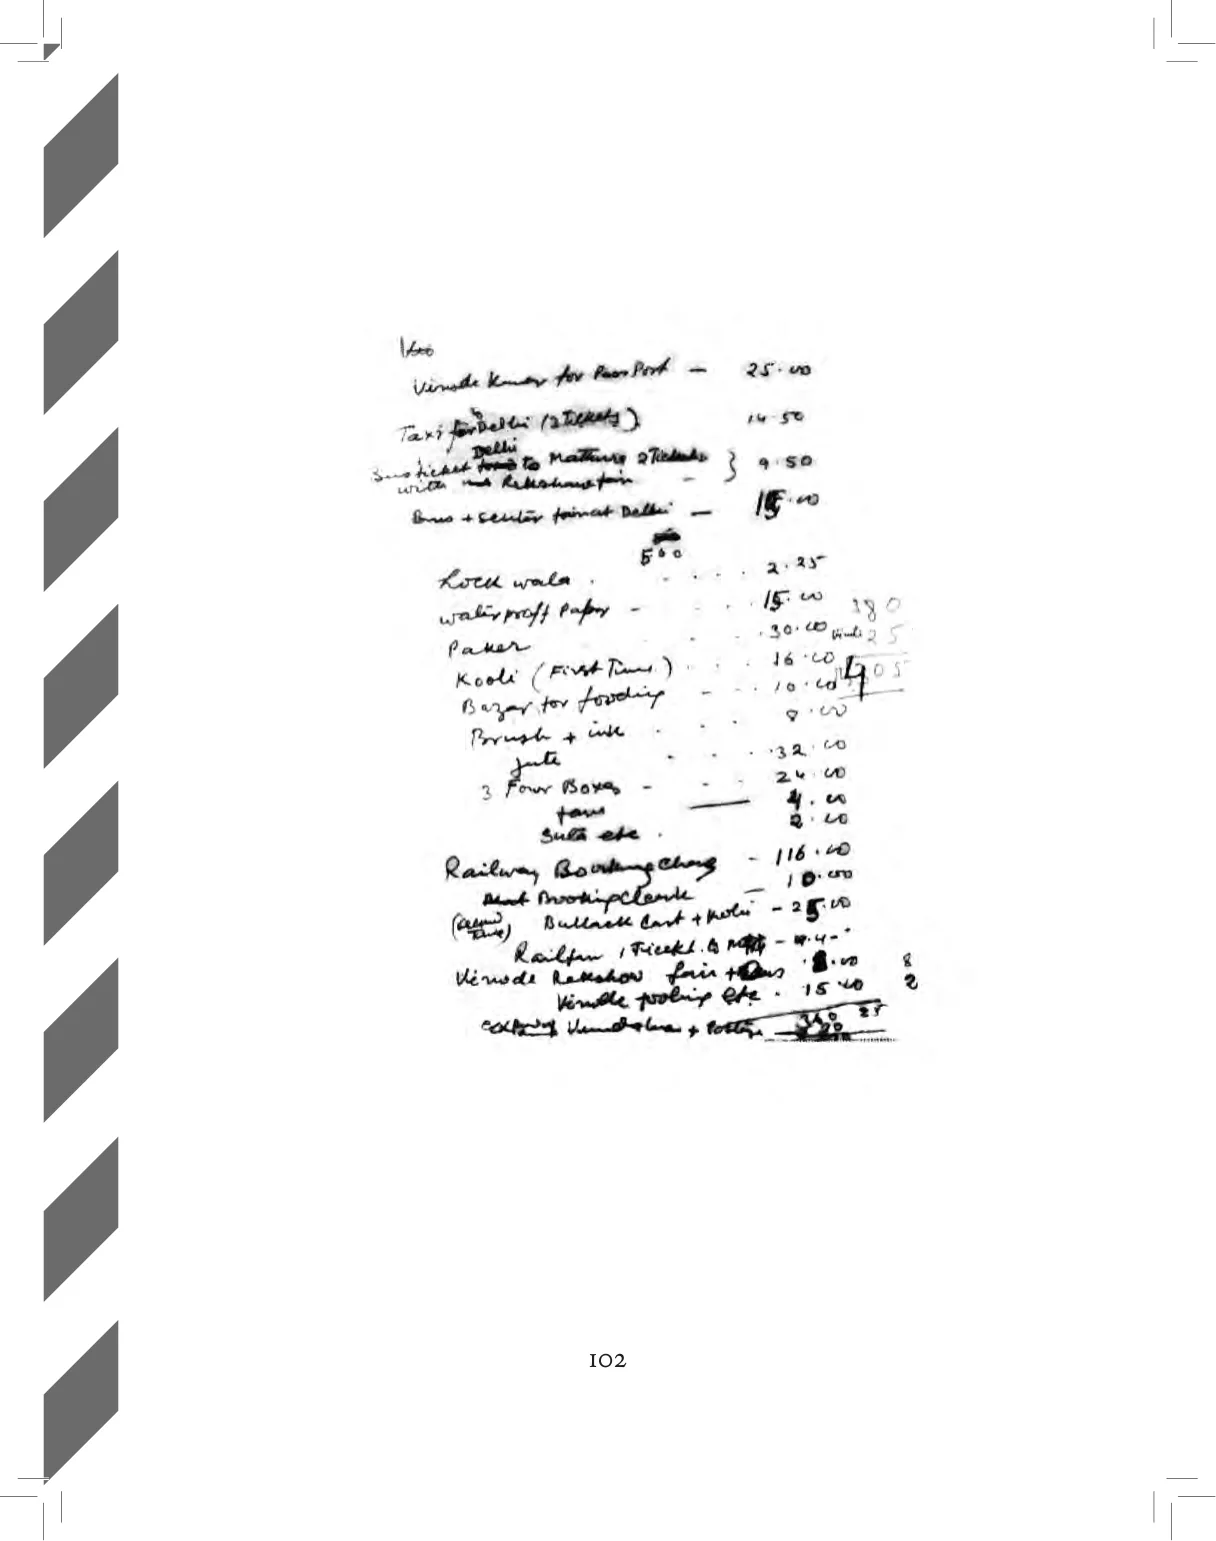 Vinode Kumar for Pass Port — 25.00
Taxi for Delhi (2 Tickets) 14.50
Delhi
Bus ticket to Mathura 2 Tickets } 9.50
with Rekshaw fair -
Bus + scuter fair at Delhi — 15.00
500
Lock wala . . . . 2.25
waterproff Paper - . . 15.00
380
Paker . . . 30.00 25
Kooli (First Time) . . . 16.00 405
Bazar for fooding - . . 10.00
Brush + ink . . . 8.00
Jute . . . 32.00
3 Four Boxes - . . 24.00
4.00
Suta etc . 2.00
Railway Booking Charg - 116.00
Booking Clerk — 10.00
(Second Time) Bullack Cart + Koli - 25.00
Vinode Rekshow fair + .00 8
Vinode fooding etc . 15.00 2
+ Postage
102